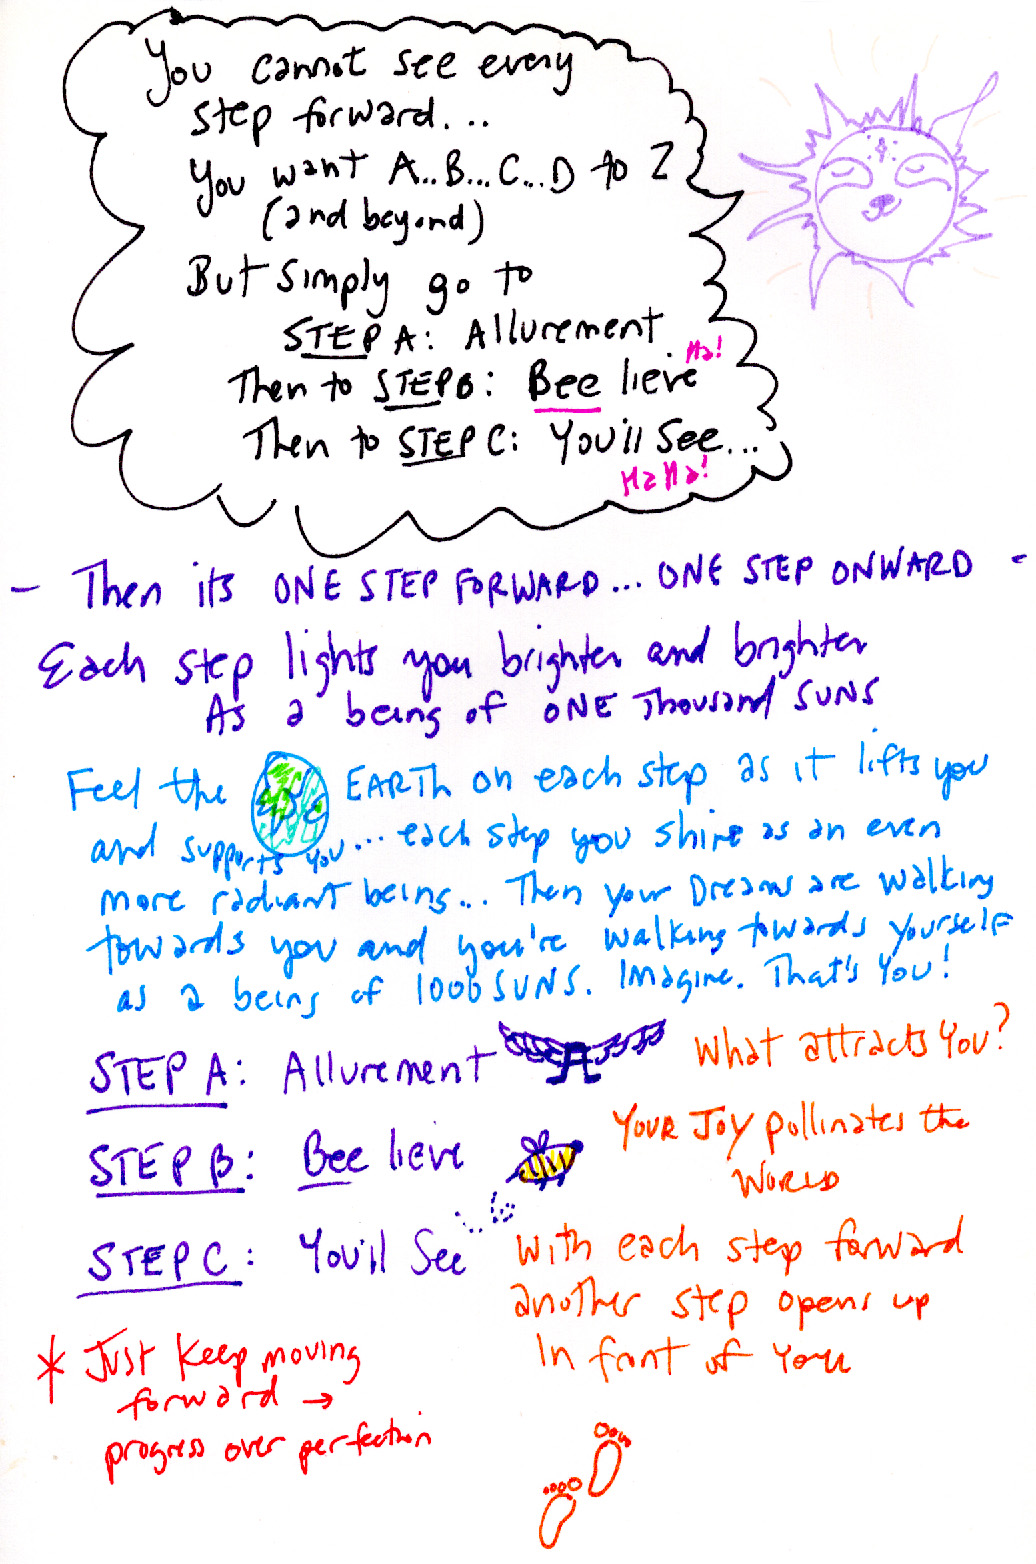 You cannot see every
step forward...
You want A...B...C...D to Z
(and beyond)
But simply go to
STEP A: Allurement
Ha!
Then to STEP B: Bee lieve
Then to STEP C: You'll See...
Ha Ha!
- Then its ONE STEP FORWARD... ONE STEP ONWARD -
Each step lights you brighter and brighter
As a being of ONE Thousand SUNS
Feel the EARTH on each step as it lifts you
and supports you... each step you shine as an even
more radiant being... Then your Dreams are walking
towards you and you're walking towards yourself
as a being of 1000 SUNS. Imagine. That's You!
STEP A: Allurement What attracts You?
STEP B: Bee lieve Your Joy pollinates the
World
STEP C: You'll See With each step forward
another step opens up
In front of You
* Just Keep moving
forward →
progress over perfection